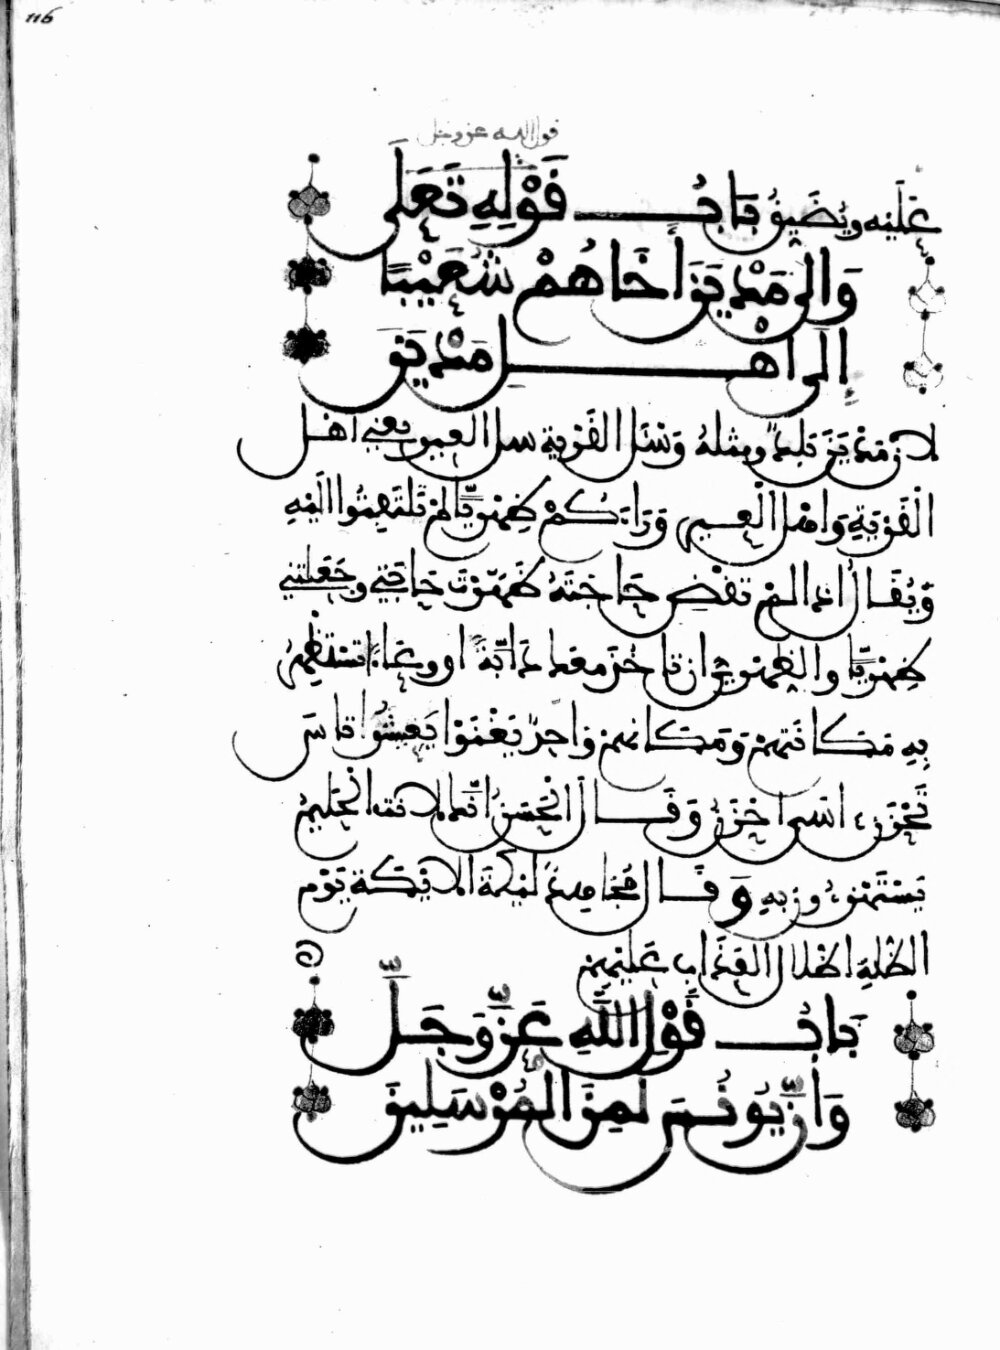 116
قول الله عز وجل
عَلَيْهِ وَيُضَيِّقُ بَابُ قَوْلِهِ تَعَلَى
وَإِلَى مَدْيَنَ أَخَاهُمْ شُعَيْبًا
إِلَى أَهْلِ مَدْيَنَ
لأن مَدْيَنَ بلدٌ ومثله وَسْئَلِ القَرْيةَ سل العير يعني أهل
الْقَرْيَةِ وَأهل الْعِيرِ وَرَاءَكُمْ ظِهْرِيًّا لم تَلْتَفِتُوا إليه
وَيُقَالُ إذا لم تقض حَاجَتَهُ ظَهَرْتَ حَاجَتِي وجَعَلْتَنِي
ظِهْرِيًّا والظِهْرِيُّ أن تاخُذَ معك دَابَّةً أو وِعَاءً تستظهرُ
بِهِ مَكَانَتِهِمْ وَمَكَانِهِمْ وَاحِدٌ يَغْنَوْا يَعِيشُوا تَاسَ
تَحْزَنْ ءَاسَى أَحْزَنُ وَقَالَ الْحَسَنُ إنَّكَ لأنت الْحَلِيمُ
يَسْتَهْزِءُونَ بِهِ وَقَالَ مُجَاهِدٌ لَيْكَةُ الأيْكَةُ يَوْمِ
الظُّلَّةِ إظلال العَذَابِ عَلَيْهِمْ
بَابُ قَوْلِ اللَّهِ عَزَّ وَجَلَّ
وَإِنَّ يُونُسَ لَمِنَ الْمُرْسَلِينَ